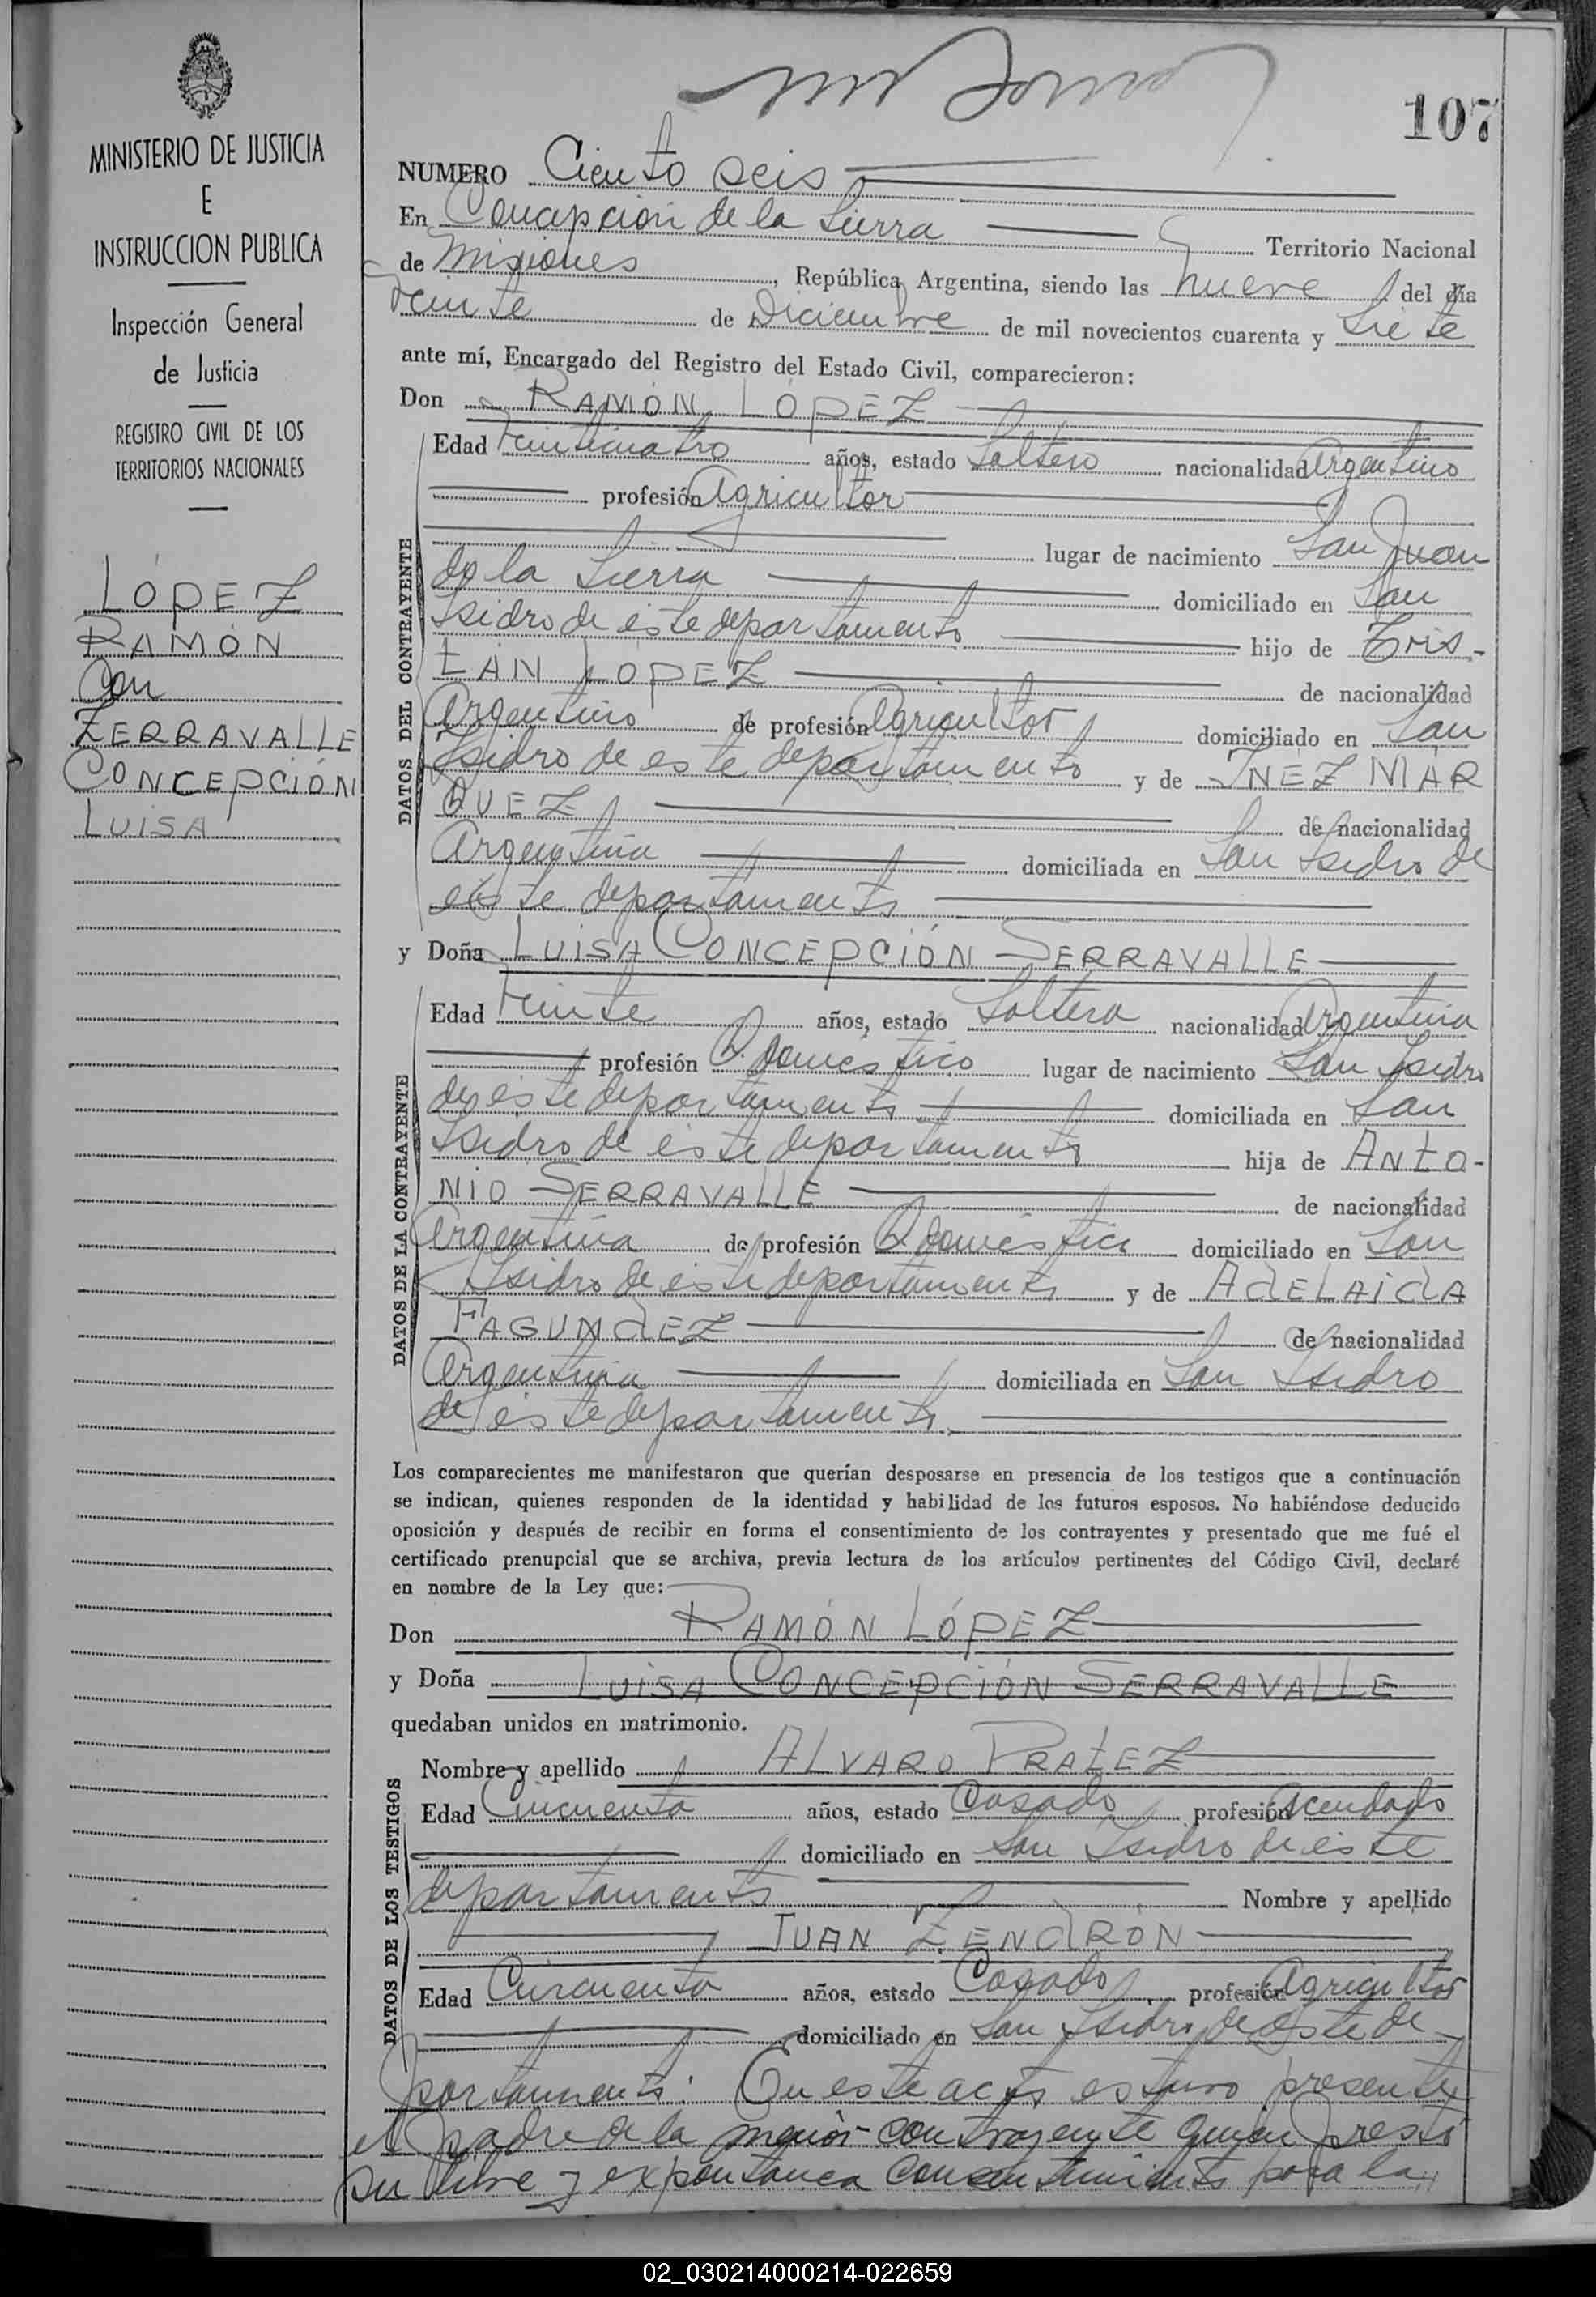 107
MINISTERIO DE JUSTICIA
E
INSTRUCCION PUBLICA
Inspección General
de Justicia
REGISTRO CIVIL DE LOS
TERRITORIOS NACIONALES
LÓPEZ
RAMÓN
Con
ZERRAVALLE
CONCEPCIÓN
LUISA
NUMERO Ciento seis
En Concepción de la Sierra Territorio Nacional
de Misiones, República Argentina, siendo las nueve del día
veinte de Diciembre de mil novecientos cuarenta y siete
ante mí, Encargado del Registro del Estado Civil, comparecieron:
Don RAMÓN LÓPEZ
DATOS DEL CONTRAYENTE
Edad veinticuatro años, estado Soltero nacionalidad Argentino
profesión Agricultor
lugar de nacimiento San Juan
de la Sierra domiciliado en San
Isidro de éste departamento hijo de Tris-
tAN LOPEZ de nacionalidad
Argentino de profesión Agricultor domiciliado en San
Isidro de este departamento y de INEZ MAR
QUEZ de nacionalidad
Argentina domiciliada en San Isidro de
éste departamento
y Doña LUISA CONCEPCIÓN SERRAVALLE
DATOS DE LA CONTRAYENTE
Edad veinte años, estado Soltera nacionalidad Argentina
profesión Q. domestico lugar de nacimiento San Isidro
de éste departamento domiciliada en San
Isidro de éste departamento hija de ANtO-
NIO SERRAVALLE de nacionalidad
Argentina de profesión Q. domestico domiciliado en San
Isidro de éste departamento y de AdELAIdA
FAGUNdEZ de nacionalidad
Argentina domiciliada en San Isidro
de éste departamento.
Los comparecientes me manifestaron que querían desposarse en presencia de los testigos que a continuación
se indican, quienes responden de la identidad y habilidad de los futuros esposos. No habiéndose deducido
oposición y después de recibir en forma el consentimiento de los contrayentes y presentado que me fué el
certificado prenupcial que se archiva, previa lectura de los artículos pertinentes del Código Civil, declaré
en nombre de la Ley que:
Don RAMÓN LÓPEZ
y Doña LUISA CONCEPCIÓN SERRAVALLE
quedaban unidos en matrimonio.
DATOS DE LOS TESTIGOS
Nombre y apellido ALVARO PRAtEZ
Edad Cincuenta años, estado Casado profesión Acendado
domiciliado en San Isidro de éste
departamento Nombre y apellido
JUAN ZENdRON
Edad Cincuenta años, estado Casado profesión Agricultor
domiciliado en San Isidro de éste de
partamento: En este acto estuvo presente
el padre de la menor contrayente quien prestó
su libre y expontanea consentimiento para la
02_030214000214-022659